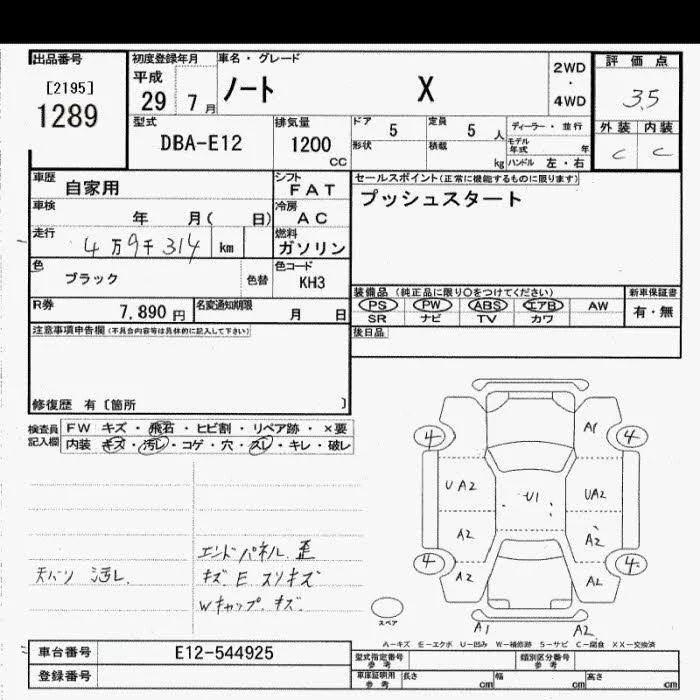 出品番号
[2195]
1289
初度登録年月
平成
29 7 月
車名・グレード
ノート X
2WD
・
4WD
評価点
3.5
外装 内装
C C
型式
DBA-E12
排気量
1200
CC
ドア 5
形状
定員 5 人
積載 kg
ディーラー・並行
モデル年式 年
ハンドル 左・右
車歴 自家用
シフト FAT
車検 年 月( 日)
冷房 AC
走行 4万9千314 km
燃料 ガソリン
色 ブラック 色替
色コード KH3
R券 7,890 円
名変通知期限 月 日
セールスポイント(正常に機能するものに限ります)
プッシュスタート
装備品 (純正品に限り○をつけてください)
PS PW ABS エアB AW
SR ナビ TV カワ
新車保証書
有・無
後日品
注意事項申告欄(不具合内容等は具体的に記入して下さい)
修復歴 有〔箇所 〕
検査員記入欄
FW キズ・飛石・ヒビ割・リペア跡・×要
内装 キズ・汚レ・コゲ・穴・スレ・キレ・破レ
天バリ 汚レ
エンドパネル 歪
キズ E スリキズ
Wキャップ キズ
4 A1 4
UA2 U1 UA2
A2 A2
4 A2 A2 4
スペア
A1 A2
A-キズ E-エクボ U-凹み W-補修跡 S-サビ C-腐食 XX-交換済
車台番号 E12-544925
登録番号
型式指定番号
参考
類別区分番号
参考
車庫証明用
参考
長さ cm 幅 cm 高さ cm